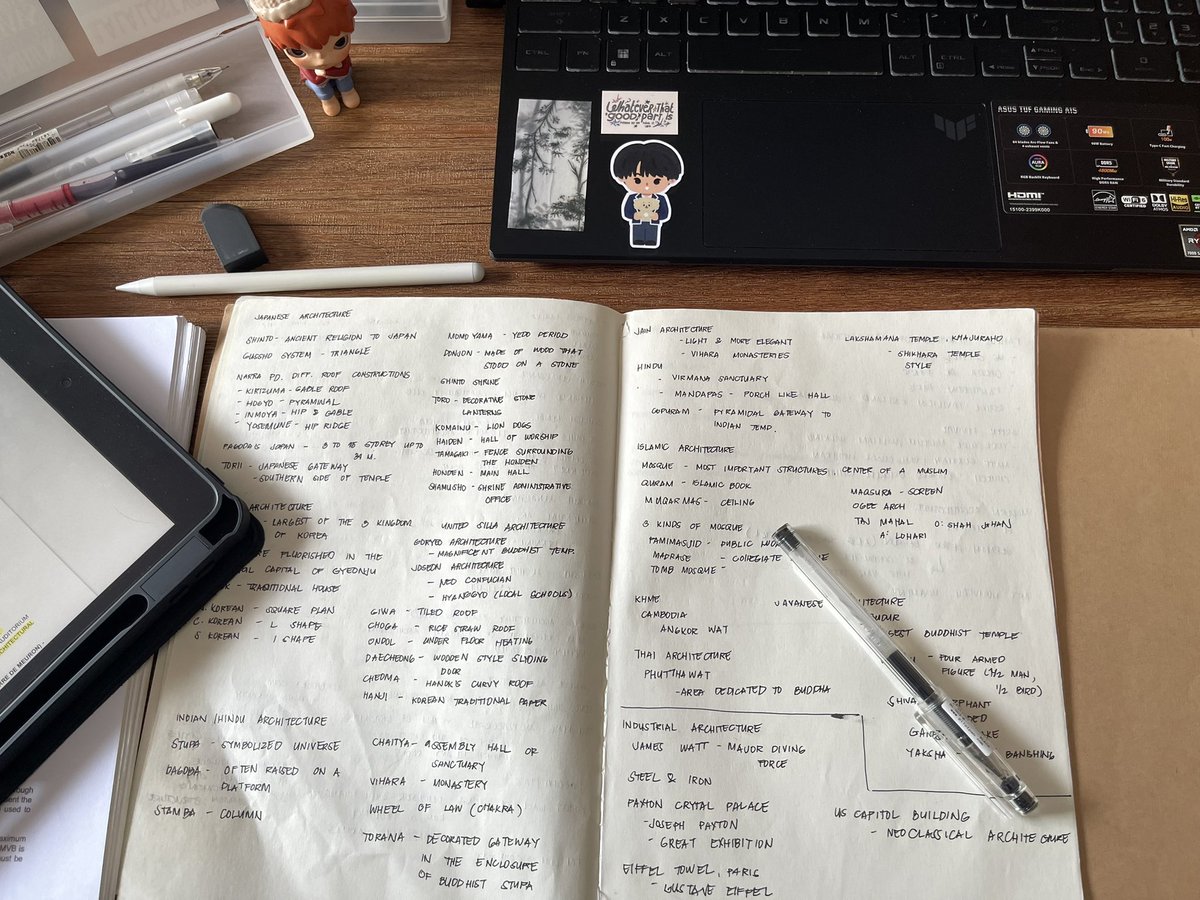 Z X C V B N M
CTRL FN ALT ALT CTRL
Whatever, That
good, part, is
ASUS TUF GAMING A15
90Wh
HDMI
15100-2399K000
WiFi CERTIFIED
DOLBY ATMOS
Hi-Res AUDIO
AMD
RY
JAPANESE ARCHITECTURE
SHINTO - ANCIENT RELIGION TO JAPAN
GUSSHO SYSTEM - TRIANGLE
NARRA PD. DIFF. ROOF CONSTRUCTIONS
- KIRIZUMA - GABLE ROOF
- HOGYO - PYRAMINAL
- INMOYA - HIP & GABLE
- YOSEMUNE - HIP RIDGE
PAGODAS JAPAN - 3 TO 15 STOREY UP TO
31 M.
TORII - JAPANESE GATEWAY
- SOUTHERN SIDE OF TEMPLE
MONOYAMA - YEDO PERIOD
DONJON - MADE OF WOOD THAT
STOOD ON A STONE
SHINTO SHRINE
TORO - DECORATIVE STONE
LANTERNS
KOMAINU - LION DOGS
HAIDEN - HALL OF WORSHIP
TAMAGAKI - FENCE SURROUNDING
THE HONDEN
HONDEN - MAIN HALL
SHAMUSHO - SHRINE ADMINISTRATIVE
OFFICE
ARCHITECTURE
- LARGEST OF THE 3 KINGDOM
OF KOREA
FLUORISHED IN THE
CAPITAL OF GYEONJU
- TRADITIONAL HOUSE
N. KOREAN - SQUARE PLAN
C. KOREAN - L SHAPE
S KOREAN - I SHAPE
UNITED SILLA ARCHITECTURE
GORYEO ARCHITECTURE
- MAGNIFICENT BUDDHIST TEMP.
JOSEON ARCHITECTURE
- NEO CONFUCIAN
- HYANGGYO (LOCAL SCHOOLS)
GIWA - TILED ROOF
CHOGA - RICE STRAW ROOF
ONDOL - UNDER FLOOR HEATING
DAECHEONG - WOODEN STYLE SLIDING
DOOR
CHEOMA - HANOK'S CURVY ROOF
HANJI - KOREAN TRADITIONAL PAPER
INDIAN / HINDU ARCHITECTURE
STUPA - SYMBOLIZED UNIVERSE
DAGOBA - OFTEN RAISED ON A
PLATFORM
STAMBA - COLUMN
CHAITYA - ASSEMBLY HALL OR
SANCTUARY
VIHARA - MONASTERY
WHEEL OF LAW (CHAKRA)
TORANA - DECORATED GATEWAY
IN THE ENCLOSURE
OF BUDDHIST STUPA
JAIN ARCHITECTURE
- LIGHT & MORE ELEGANT
- VIHARA MONASTERIES
HINDU
- VIRMANA SANCTUARY
- MANDAPAS - PORCH LIKE HALL
GOPURAM - PYRAMIDAL GATEWAY TO
INDIAN TEMP.
LAKSHAMANA TEMPLE, KHAJURAHO
- SHIKHARA TEMPLE
STYLE
ISLAMIC ARCHITECTURE
MOSQUE - MOST IMPORTANT STRUCTURES, CENTER OF A MUSLIM
QURAM - ISLAMIC BOOK
MUQARMAS - CEILING
3 KINDS OF MOSQUE
JAMIMASJID - PUBLIC
MADRASE - COLLEGIATE
TOMB MOSQUE -
MAQSURA - SCREEN
OGEE ARCH
TAJ MAHAL O: SHAH JOHAN
A: LOHARI
KHME
CAMBODIA
ANGKOR WAT
THAI ARCHITECTURE
PHUTTHAWAT
- AREA DEDICATED TO BUDDHA
JAVANESE
BUDDHIST TEMPLE
- FOUR ARMED
FIGURE (1/2 MAN,
1/2 BIRD)
SHIVA
YAKSHA - BANISHING
INDUSTRIAL ARCHITECTURE
JAMES WATT - MAJOR DIVING
FORCE
STEEL & IRON
PAXTON CRYTAL PALACE
- JOSEPH PAXTON
- GREAT EXHIBITION
EIFFEL TOWEL, PARIS
- GUSTAVE EIFFEL
US CAPITOL BUILDING
- NEOCLASSICAL ARCHITECTURE
AUDITORIUM
ARCHITECTURAL
DE MEURON)
used to
MVB is